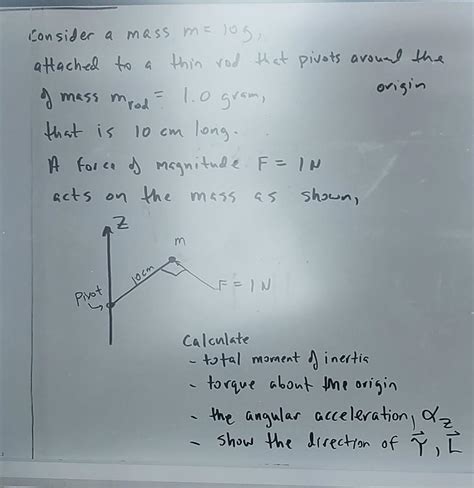 Consider a mass m = 10g,
attached to a thin rod that pivots around the
origin
of mass m rod = 1.0 gram,
that is 10 cm long.
A force of magnitude F = 1 N
acts on the mass as shown,
Z
m
10cm
Pivot
F = 1 N
Calculate
- total moment of inertia
- torque about the origin
- the angular acceleration, αz
- show the direction of τ⃗, L⃗